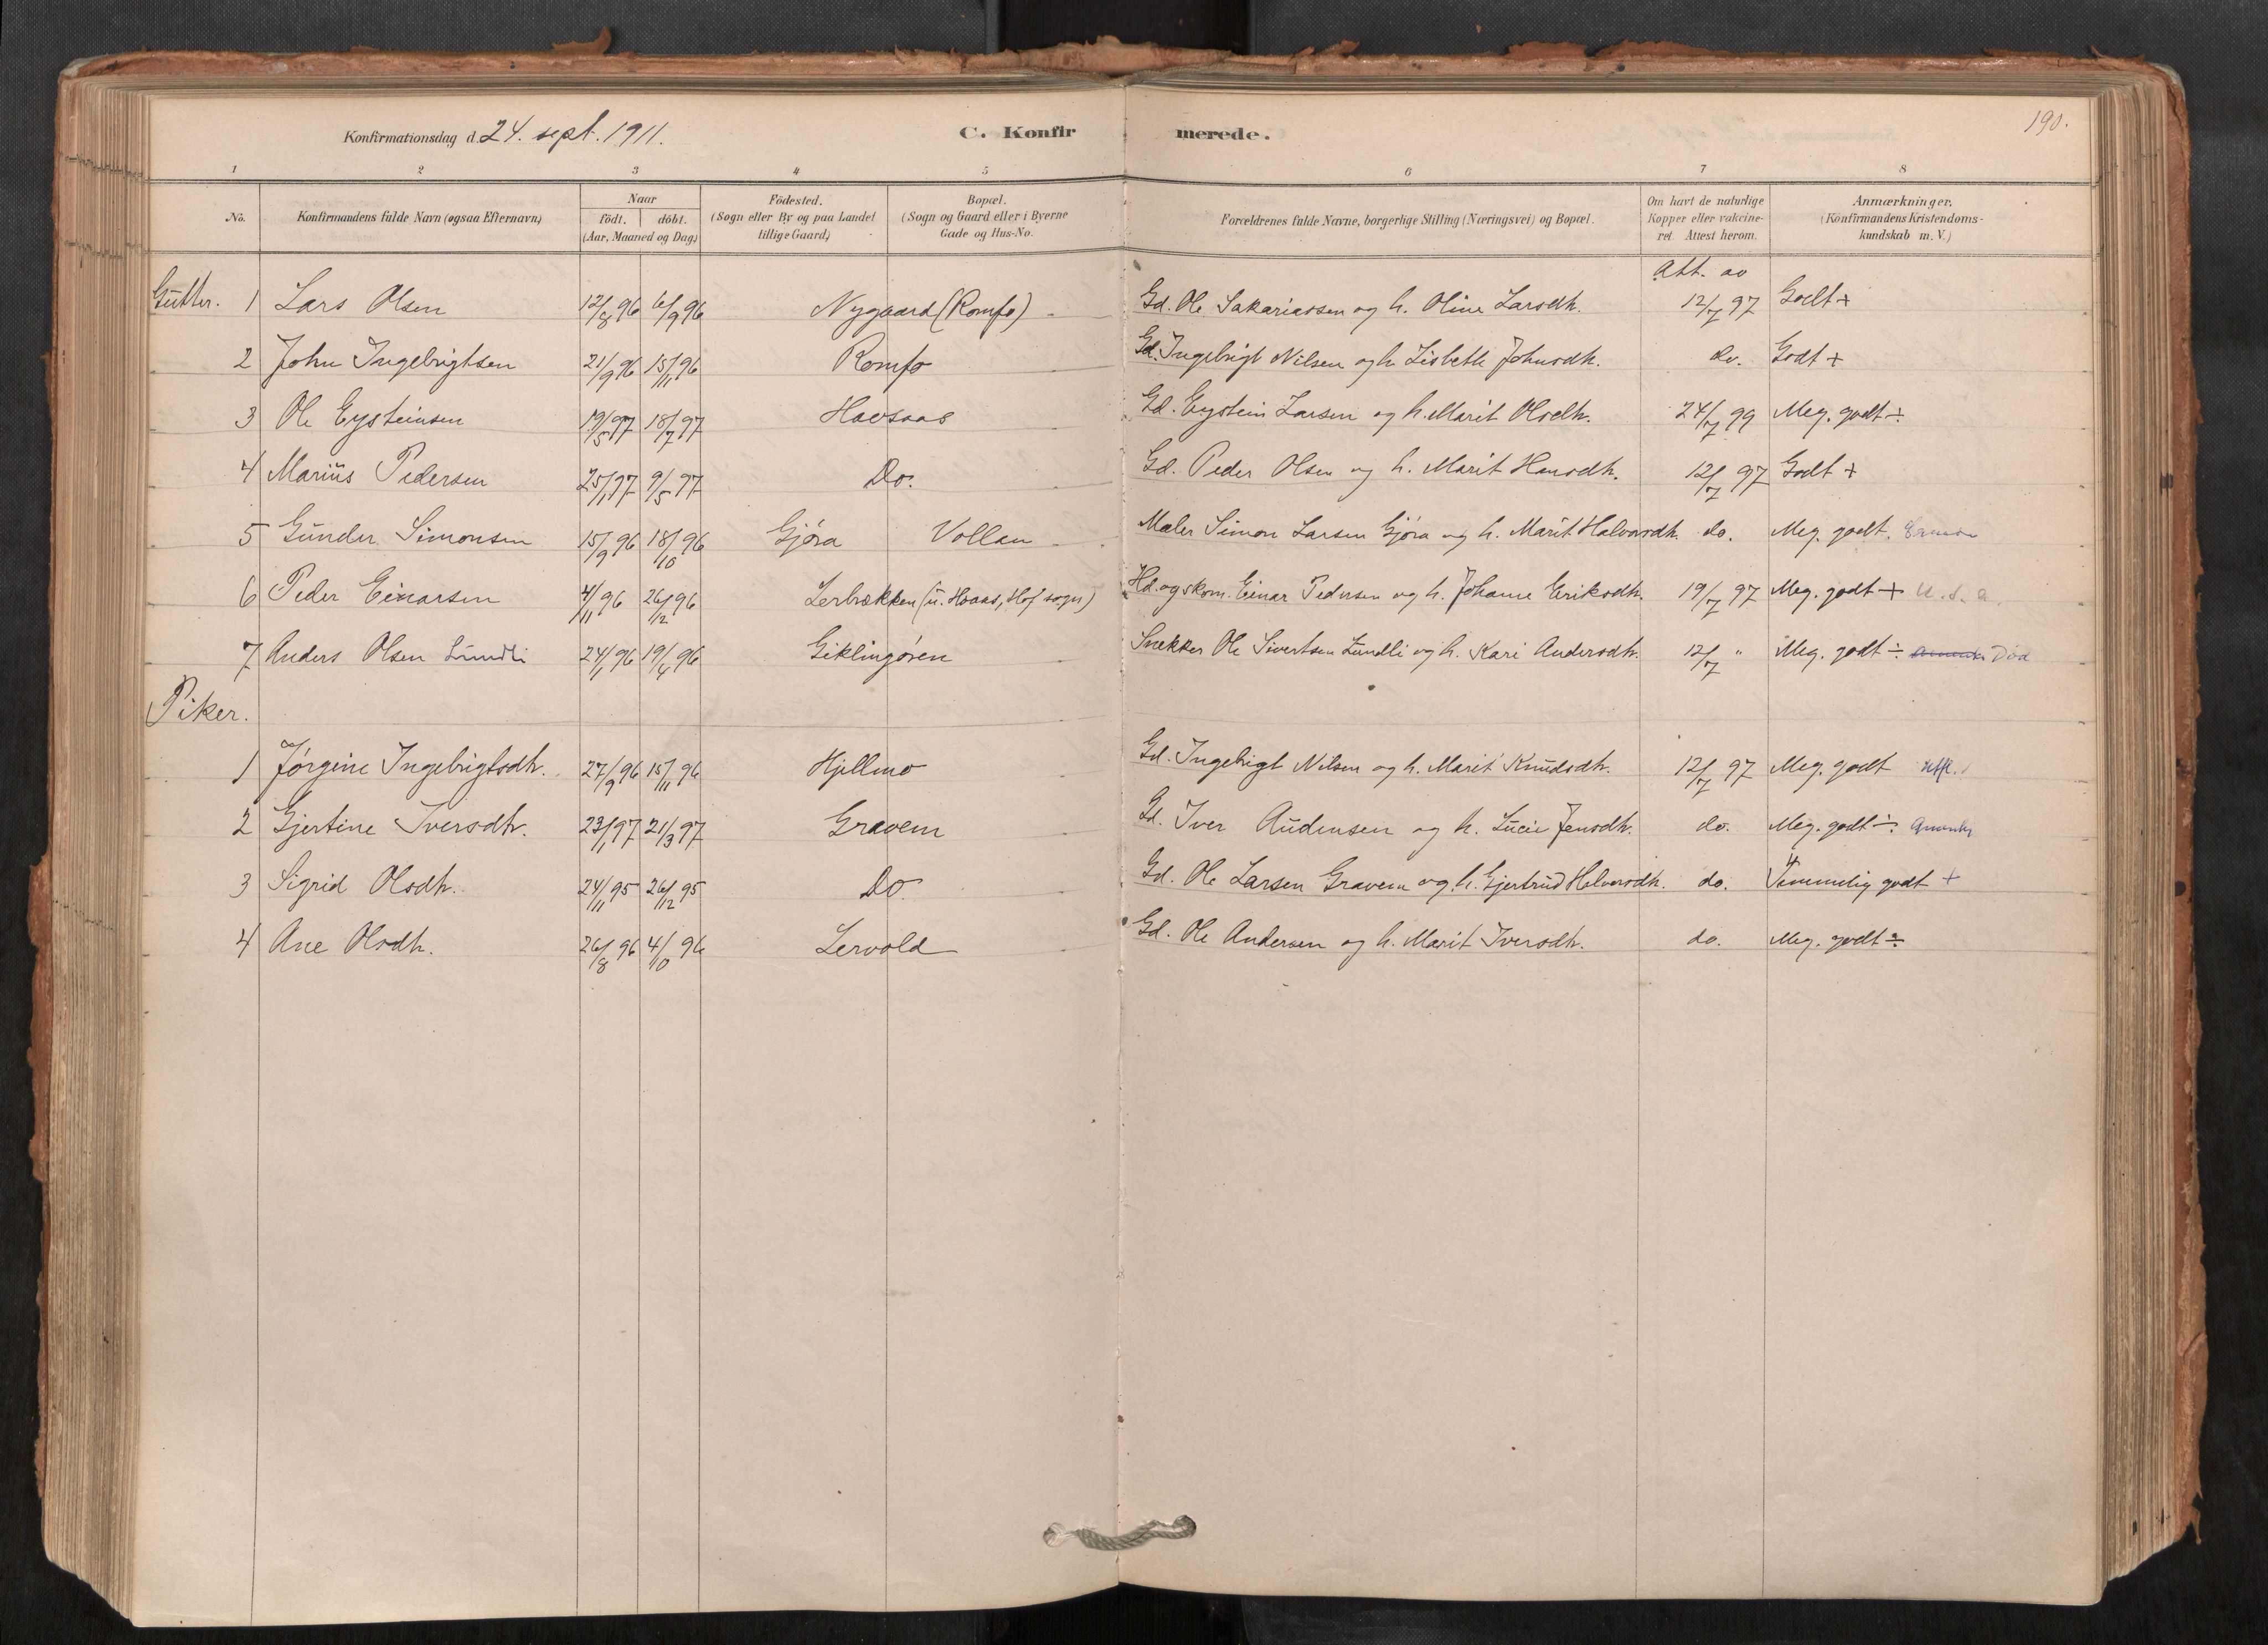 Konfirmationsdag d. 24. sept. 1911. C. Konfirmerede. 190.
1 2 3 4 5 6 7 8
No. Konfirmandens fulde Navn (ogsaa Efternavn) Naar födt. döbt. (Aar, Maaned og Dag) Födested. (Sogn eller By og paa Landet tillige Gaard) Bopæl. (Sogn og Gaard eller i Byerne Gade og Hus-No. Forældrenes fulde Navne, borgerlige Stilling (Næringsvei) og Bopæl. Om havt de naturlige Kopper eller vakcineret. Attest herom. Anmærkninger. (Konfirmandens Kristendomskundskab m. V.)
Att. av
Gutter. 1 Lars Olsen 12/8 96 6/9 96 Nygaard (Romfo) Gd. Ole Sakariassen og h. Oline Larsdtr. 12/7 97 Godt +
2 John Ingebrigtsen 21/9 96 15/11 96 Romfo Gd. Ingebrigt Nilsen og h. Lisbeth Johnsdtr. do. Godt +
3 Ole Eysteinsen 19/5 97 18/7 97 Hovsaas Gd. Eystein Larsen og h. Marit Olsdtr. 24/7 99 Meg. godt ÷
4 Marius Pedersen 25/1 97 9/5 97 Do. Gd. Peder Olsen og h. Marit Hansdtr. 12/7 97 Godt +
5 Gunder Simonsen 15/9 96 18/10 96 Gjøra Vollan Maler Simon Larsen Gjøra og h. Marit Halvorsdtr. do. Meg. godt.
6 Peder Einarsen 4/11 96 26/12 96 Lerbækken (u. Hoaas, Hof sogn) Hd. og skom. Einar Pedersen og h. Johanne Eriksdtr. 19/7 97 Meg. godt + U.S.a.
7 Anders Olsen Lundli 24/1 96 19/4 96 Giklingøren Snekker Ole Sivertsen Lundli og h. Kari Andersdtr. 12/7 " Meg. godt ÷ Død
Piker.
1 Jørgine Ingebrigtsdtr. 27/9 96 15/11 96 Hjellmo Gd. Ingebrigt Nilsen og h. Marit Knudsdtr. 12/7 97 Meg. godt utfl.
2 Gjertine Iversdtr. 23/1 97 21/3 97 Gravem Gd. Iver Audensen og h. Lucie Jensdtr. do. Meg. godt ÷
3 Sigrid Olsdtr. 24/11 95 26/12 95 Do. Gd. Ole Larsen Gravem og h. Gjertrud Halvorsdtr. do. Temmelig godt +
4 Ane Olsdtr. 26/8 96 4/10 96 Lervold Gd. Ole Andersen og h. Marit Iversdtr. do. Meg. godt ÷